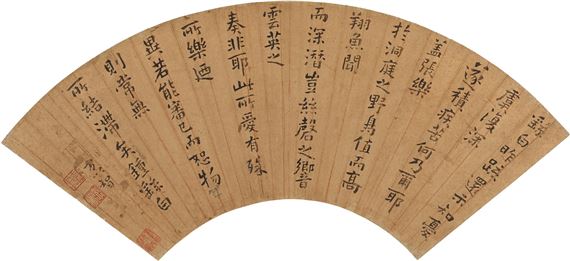 繇白昨疏還示知憂
虞復深
遂積疾苦何乃爾耶
蓋張樂
於洞庭之野鳥值而高
翔魚聞
而深潛豈絲磬之響
雲英之
奏非耶此所愛有殊
所樂迺
異若能審己而恕物
則常無
所結滯矣鍾繇白